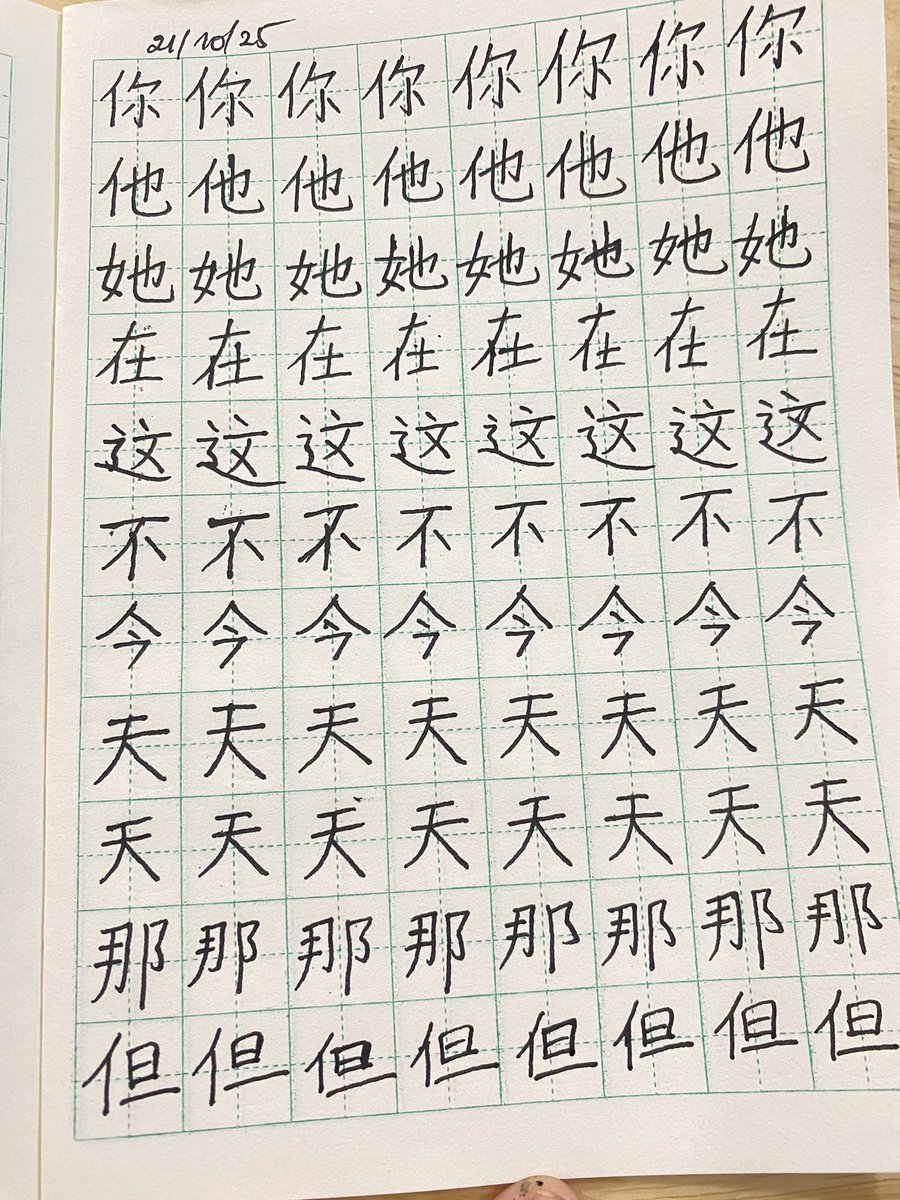 21/10/25
你 你 你 你 你 你 你 你
他 他 他 他 他 他 他 他
她 她 她 她 她 她 她 她
在 在 在 在 在 在 在 在
这 这 这 这 这 这 这 这
不 不 不 不 不 不 不 不
今 今 今 今 今 今 今 今
天 天 天 天 天 天 天 天
天 天 天 天 天 天 天 天
那 那 那 那 那 那 那 那
但 但 但 但 但 但 但 但